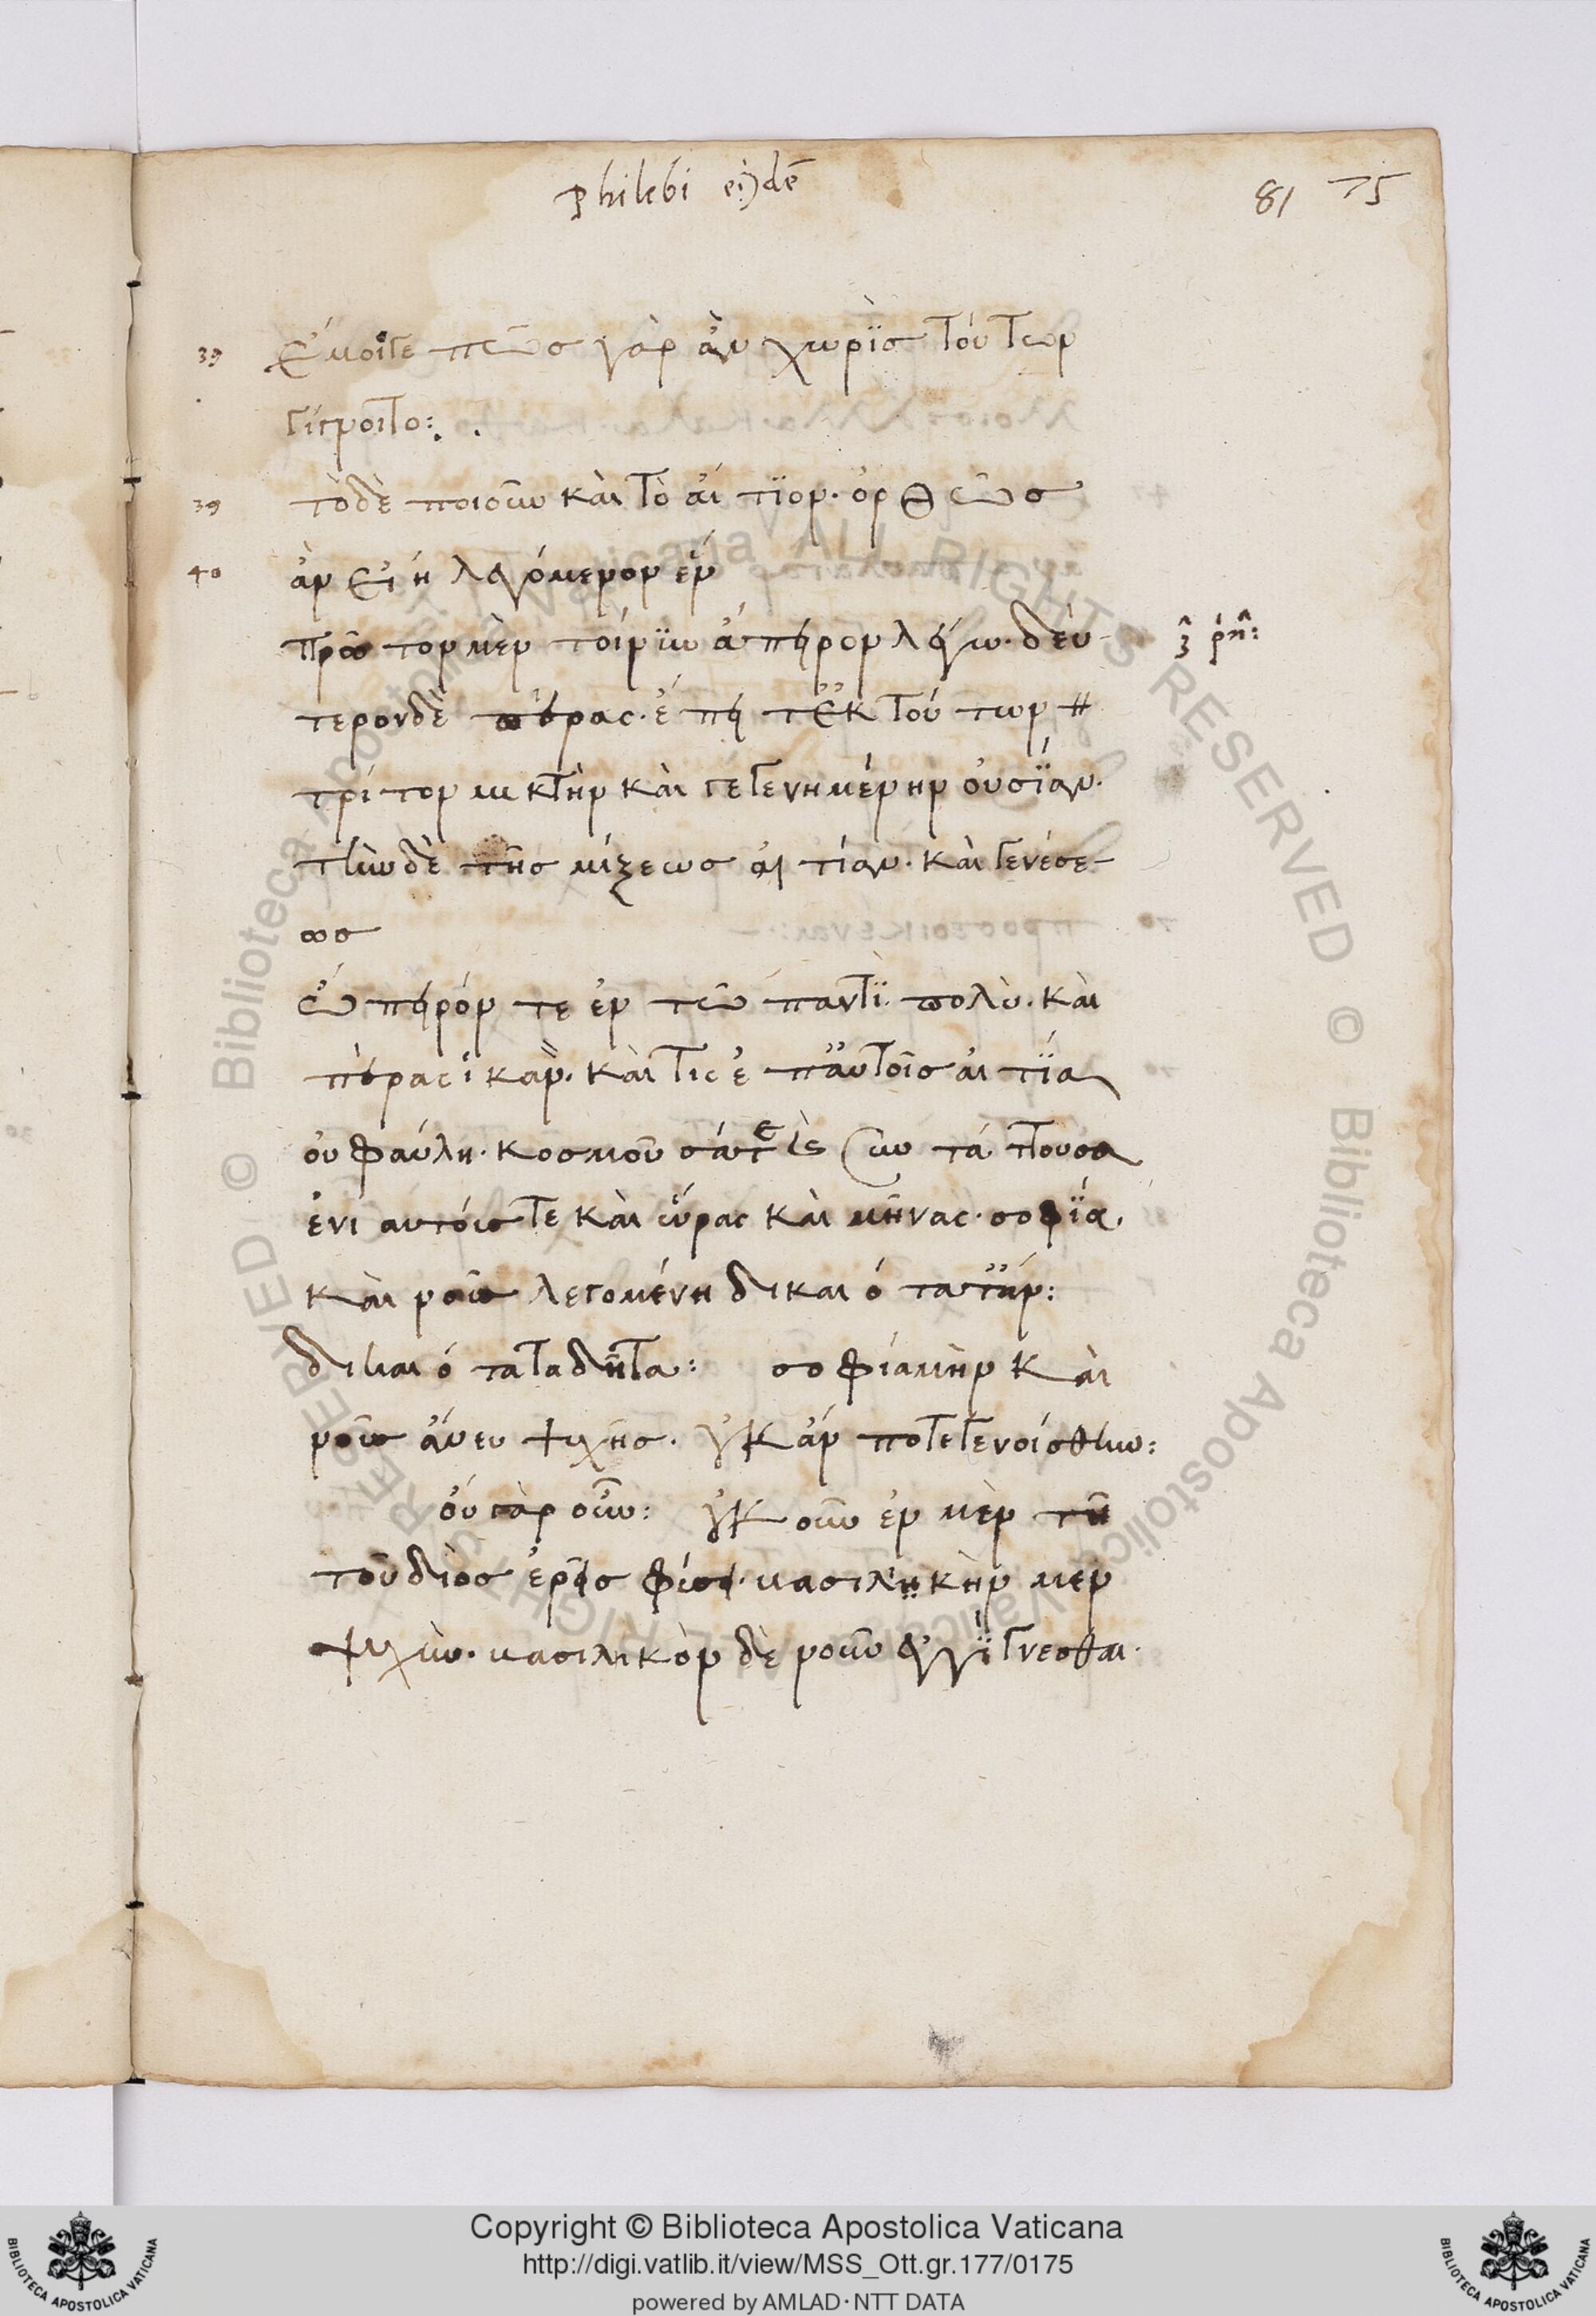 Philebi eiusdē
81 75
39 ἔμοιγε πῶς γὰρ ἂν χωρὶς τούτων
γίγνοιτο:.
39 τὸ δὲ ποιοῦν καὶ τὸ αἴτιον. ὀρθῶς
40 ἂν εἴη λεγόμενον ἕν
πρῶτον μὲν τοίνυν ἄπειρον λέγω. δεύ-
τερον δὲ πέρας. ἔπειτ ἐκ τούτων
τρίτον μικτὴν καὶ γεγενημένην οὐσίαν.
τὴν δὲ τῆς μίξεως αἰτίαν. καὶ γενέσε-
ως
ἄπειρόν τε ἐν τῷ παντὶ πολύ. καὶ
πέρας ἱκανόν. καὶ τις ἐπ αὐτοῖς αἰτία
οὐ φαύλη. κοσμοῦσά τε καὶ συντάττουσα
ἐνιαυτούς τε καὶ ὥρας καὶ μῆνας. σοφία
καὶ νοῦς λεγομένη δικαιότατ ἄν:
δικαιότατα δῆτα: σοφία μὴν καὶ
νοῦς ἄνευ ψυχῆς. οὐκ ἄν ποτε γενοίσθην:
οὐ γὰρ οὖν: οὐκοῦν ἐν μὲν τῇ
τοῦ διὸς ἐρεῖς φύσει. βασιλικὴν μὲν
ψυχὴν. βασιλικὸν δὲ νοῦν ἐγγίγνεσθαι.
Copyright © Biblioteca Apostolica Vaticana
http://digi.vatlib.it/view/MSS_Ott.gr.177/0175
powered by AMLAD·NTT DATA
BIBLIOTECA APOSTOLICA VATICANA
BIBLIOTECA APOSTOLICA VATICANA